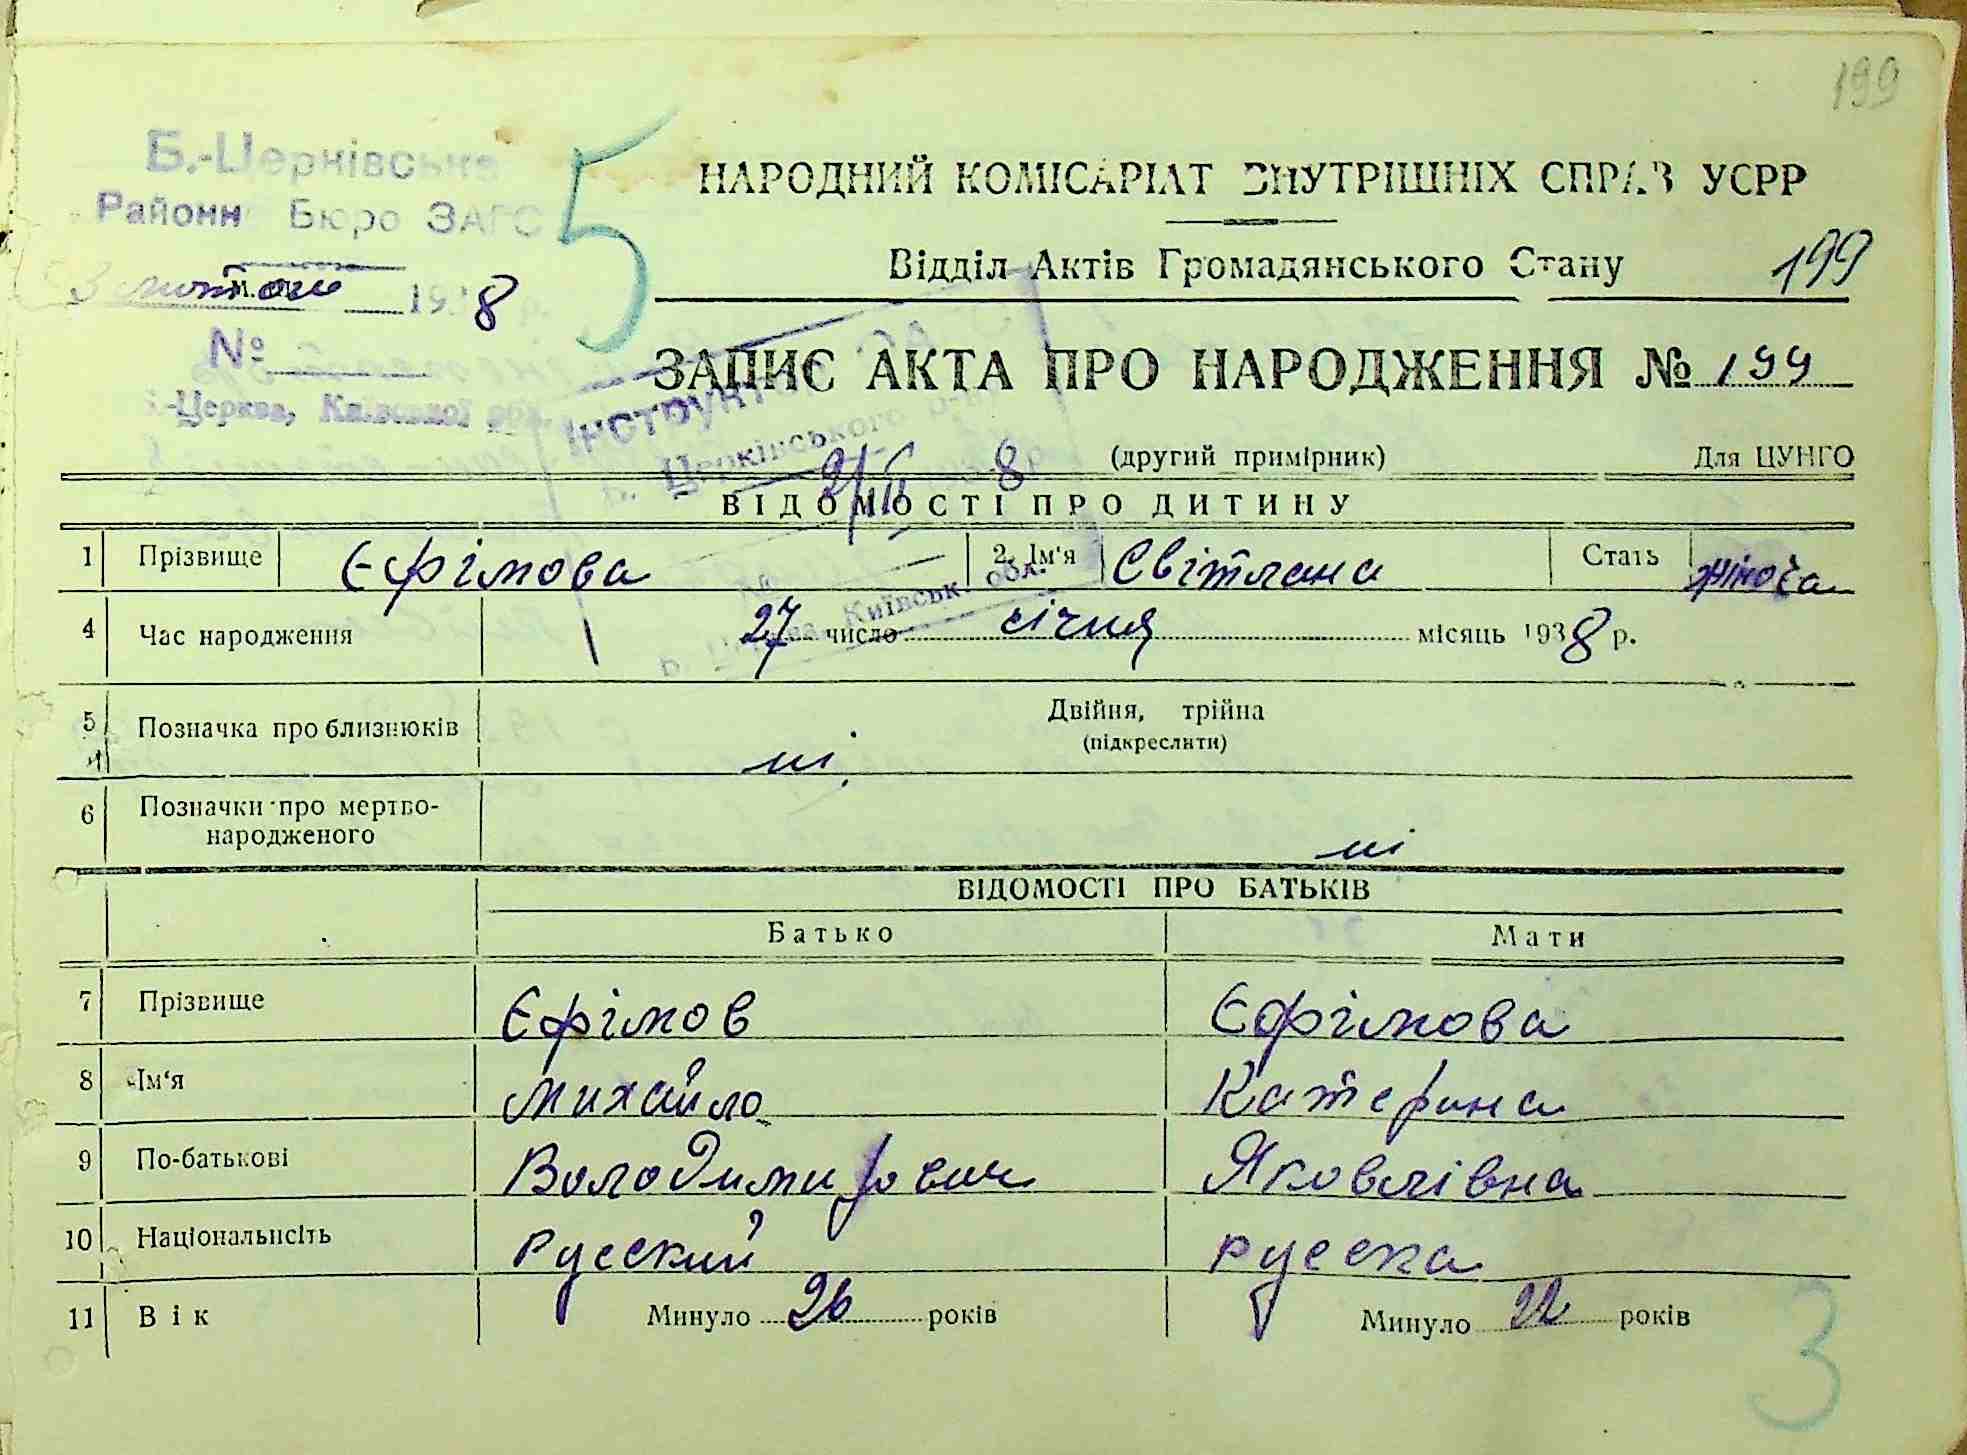 199
Б.-Церківська
Районн Бюро ЗАГС
лютого 1938 р.
№
Б.-Церква, Київської обл.
5
НАРОДНИЙ КОМІСАРІАТ ВНУТРІШНІХ СПРАВ УСРР
Відділ Актів Громадянського Стану 199
ЗАПИС АКТА ПРО НАРОДЖЕННЯ № 199
Інструктор
Б. Церківського р-ну
2/ІІ 1938 р.
Б. Церква, Київськ. обл.
(другий примірник) Для ЦУНГО
ВІДОМОСТІ ПРО ДИТИНУ
1 Прізвище Єфімова 2. Ім'я Світлана Стать жіноча
4 Час народження 27 число січня місяць 1938 р.
5 Позначка про близнюків Двійня, трійна
(підкреслити)
ні
6 Позначки про мертво-
народженого ні
ВІДОМОСТІ ПРО БАТЬКІВ
Батько Мати
7 Прізвище Єфімов Єфімова
8 Ім'я Михайло Катерина
9 По-батькові Володимирович Яковлівна
10 Національність Русский русска
11 Вік Минуло 26 років Минуло 22 років
3